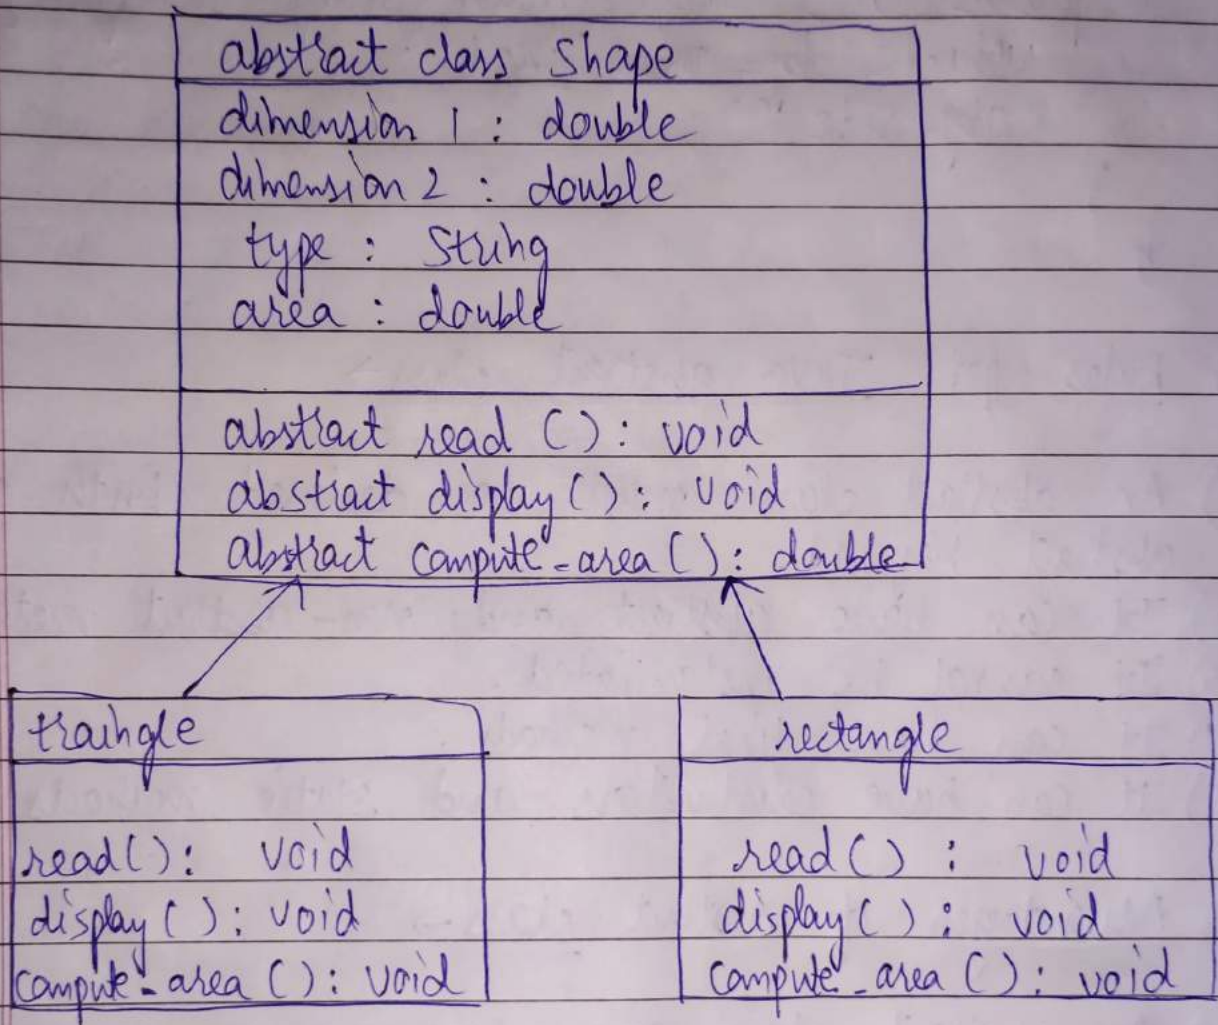 abstract class Shape
dimension 1 : double
dimension 2 : double
type : String
area : double
abstract read () : void
abstract display () : void
abstract compute_area () : double
traingle
read() : void
display () : void
compute_area () : void
rectangle
read () : void
display () : void
compute_area () : void